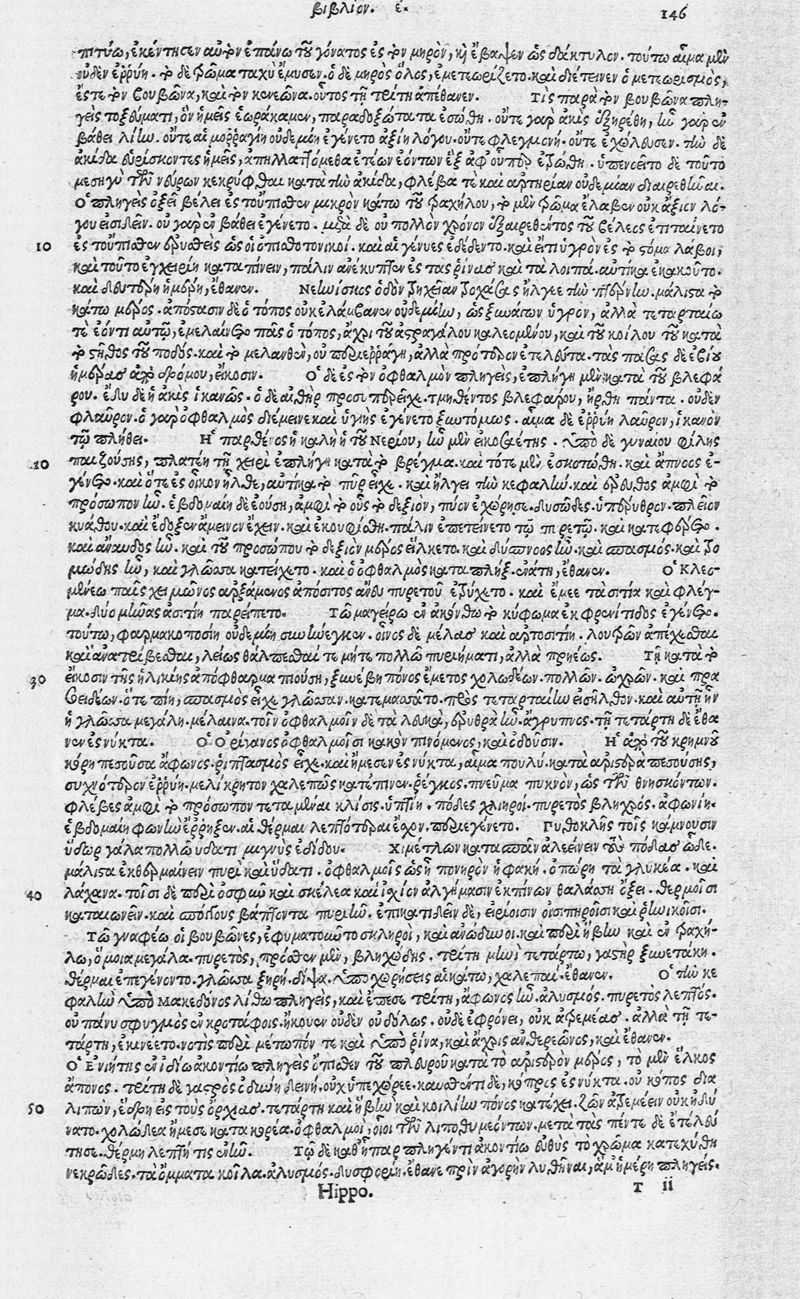 βιβλίον. ε.
146
οὐδὲν ἐῤῥύη. τὸ δὲ στόμα ταχὺ ἔμυσεν. ὁ δὲ μηρὸς ὅλος, ἐμετεωρίζετο. καὶ διέτεινεν ὁ μετεωρισμὸς,
ἔς τε τὸν βουβῶνα, καὶ τὸν κενεῶνα. οὗτος τῇ τρίτῃ ἀπέθανεν. Τὶς παρὰ τὸν βουβῶνα πλη-
γεὶς τοξεύματι, ὃν ἡμεῖς ἑωράκαμεν, παραδοξότατα ἐσώθη. οὔτε γὰρ ἀκὶς ἐξῃρέθη, ἦν γὰρ ἐν
βάθει λίην. οὔτε αἱμοῤῥαγίη οὐδεμίη ἐγένετο ἀξίη λόγου. οὔτε φλεγμονή. οὔτε ἐχώλευσεν. τὴν δὲ
μεσηγὺ τῶν νεύρων κεκρύφθαι κατὰ τὴν ἀκίδα, φλέβα τε καὶ ἀρτηρίαν οὐδεμίαν διαιρεθῆναι.
Ὁ πληγεὶς ὀξεῖ βέλει ἐς τοὔπισθεν μικρὸν κάτω τοῦ τραχήλου, τὸ μὲν στόμα ἔλαβεν οὐκ ἄξιον λό-
γου εἰσιδεῖν. οὐ γὰρ ἐν βάθει ἐγένετο. μετὰ δὲ οὐ πολλὸν χρόνον ἐξαιρεθέντος τοῦ βέλεος ἐπιταίνετο
10
ἐς τοὔπισθεν ἐρυσθεὶς ὡς οἱ ὀπισθοτονικοί. καὶ αἱ γένυες ἐδέδεντο. καὶ εἴ τι ὑγρὸν ἐς τὸ στόμα λάβοι,
καὶ τοῦτο ἐγχειρέη καταπίνειν, πάλιν ἀνέκυπτεν ἐς τὰς ῥίνας καὶ τὰ λοιπὰ αὐτίκα ἐκακοῦτο.
κάτω μέρος. ἀπόστασιν δὲ ὁ τόπος οὐκ ἐλάμβανεν οὐδεμίην, ὡς ξυνάπτειν ὑγρὸν, ἀλλὰ τεταρταίῳ
τε ἐόντι αὐτῷ, ἐμελαίνετο πᾶς ὁ τόπος, ἄχρι τοῦ ἀστραγάλου καλεομένου, καὶ τοῦ κοίλου τοῦ κατὰ
τὸ στῆθος τοῦ ποδός. καὶ τὸ μελανθὲν, οὐ περιεῤῥάγη, ἀλλὰ πρότερον ἐτελεύτα. τὰς πάσας δὲ ἐβίου
ἡμέρας ἀπὸ δρόμου, εἴκοσιν. Ὁ δὲ ἐς τὸν ὀφθαλμὸν πληγεὶς, ἐπλήγη μὲν κατὰ τοῦ βλεφά
ρου. ἔδυ δὲ ἡ ἀκὶς ἱκανῶς. ὁ δὲ ἀθὴρ προσυπερεῖχε. τμηθέντος βλεφάρου, ἤρθη πάντα. οὐδὲν
φλαῦρον. ὁ γὰρ ὀφθαλμὸς διέμεινε καὶ ὑγιὴς ἐγένετο ξυντόμως. αἷμα δὲ ἐῤῥύη λαῦρον, ἱκανὸν
τῷ πλήθει. Ἡ παρθένος ἡ καλὴ ἡ τοῦ Νερίου, ἦν μὲν εἰκοσαέτης. ὑπὸ δὲ γυναίου φίλης
20
παιζούσης, πλατέῃ τῇ χειρὶ ἐπλήγη κατὰ τὸ βρέγμα. καὶ τότε μὲν ἐσκοτώθη. καὶ ἄπνοος ἐ-
γένετο. καὶ ὅτε ἐς οἶκον ἦλθε, αὐτίκα τὸ πῦρ εἶχε. καὶ ἤλγει τὴν κεφαλήν. καὶ ἔρευθος ἀμφὶ τὸ
πρόσωπον ἦν. ἑβδομαίη δὲ ἐούσῃ, ἀμφὶ τὸ οὖς τὸ δεξιὸν, πῦον ἐχώρησε. δυσῶδες. ὑπέρυθρον. πλεῖον
κυάθου. καὶ ἔδοξεν ἄμεινον ἔχειν. καὶ ἐκουφίσθη. πάλιν ἐπετείνετο τῷ πυρετῷ. καὶ κατεφέρετο.
καὶ ἄναυδος ἦν. καὶ τοῦ προσώπου τὸ δεξιὸν μέρος εἵλκετο. καὶ δύσπνοος ἦν. καὶ σπασμὸς. καὶ τρο
μώδης ἦν, καὶ γλῶσσα κατείχετο. καὶ ὁ ὀφθαλμὸς καταπλήξ. ἐνάτῃ, ἔθανεν. Ὁ Κλεο-
μένεω παῖς χειμῶνος ἀρξάμενος ἀπόσιτος ἄνευ πυρετοῦ ἐτρύχετο. καὶ ἔμεε τὰ σιτία καὶ φλέγ-
μα. δύο μῆνας ἀσιτίη παρέπετο. Τῷ μαγείρῳ ἐν ἀκάνθῳ τὸ κύφωμα ἐκ φρενίτιδος ἐγένετο.
τούτῳ, φαρμακοποσίη οὐδεμίη συνήνεγκεν. οἶνος δὲ μέλας καὶ ἀρτοσιτίη. λουτρῶν ἀπέχεσθαι
καὶ ἀνατρίβεσθαι, λείως θάλπεσθαί τε μήτε πολλῷ πυριήματι, ἀλλὰ πρηέως. Τῇ κατὰ τὸ
30
νεν ἐς νύκτα. Ὁ Ὀρίγανος ὀφθαλμοῖσι κακὸν πινόμενος, καὶ ὀδοῦσιν. Ἡ ἀπὸ τοῦ κρημνοῦ
κόρη πεσοῦσα ἄφωνος. ῥιπτασμὸς εἶχε. καὶ ἤμεσεν ἐς νύκτα, αἷμα πουλύ. κατὰ ἀριστερὰ πεσούσης,
συχνότερον ἐῤῥύη. μελίκρητον χαλεπῶς κατέπινεν. ῥέγκος. πνεῦμα πυκνὸν, ὡς τῶν θνησκόντων.
φλέβες ἀμφὶ τὸ πρόσωπον τεταμέναι κλίσις ὑπτίη. πόδες χλιηροί. πυρετὸς βληχρός. ἀφωνίη.
ἑβδομαίη φωνὴν ἔῤῥηξεν. αἱ θέρμαι λεπτότεραι ἔσχον. περιεγένετο. Πυθοκλῆς τοῖς κάμνουσιν
ὕδωρ γάλα πολλῷ ὕδατι μιγνὺς ἐδίδου. Χιμέτλων καταπᾶν ἀλεείνειν τοὺς πόδας ὧδε.
μάλιστα ἐκθερμαίνειν πυρὶ καὶ ὕδατι. ὀφθαλμοῖς ὥστ᾽ ἡ πονηρὸν ἡ φακή. ὀπώρη τὰ γλυκέα. καὶ
40
λάχανα. τοῖσι δὲ περὶ ὀσφῦν καὶ σκέλεα καὶ ἰσχίον ἀλγήμασιν ἐκ πόνων θαλάσσῃ ὄξει. θερμοῖσι
καταιωνεῖν. καὶ σπόγγους βάπτοντα πυριῆν. ἐπικαταδεῖν δὲ, εἰρίοισιν οἰσυπηροῖσι καὶ ἀρνακοῖσι.
Τῷ γναφέω οἱ βουβῶνες, ἐφυματοῦντο σκληροὶ, καὶ ἀνώδυνοι. καὶ περὶ ἥβην καὶ ἐν τραχή-
λῳ, ὅμοια μεγάλα. πυρετὸς, πρόσθεν μὲν, βηχώδης. τρίτῃ μηνὶ τετάρτῳ, γαστὴρ ξυνετάκη.
θέρμαι ἐπεγένοντο. γλῶσσα ξηρή. δίψα. ὑποχωρήσεις αἱ κάτω, χαλεπαί. ἔθανεν. Ὁ τὴν κε
φαλὴν ὑπὸ Μακεδόνος λίθῳ πληγεὶς, καὶ ἔπεσε τρίτῃ, ἄφωνος ἦν. ἀλυσμός. πυρετὸς λεπτός.
οὐ πάνυ σφυγμὸς ἐν κροτάφοις. ἤκουεν οὐδὲν οὐδόλως. οὐδὲ ἐφρόνει, οὐκ ἀτρεμέας. ἀλλὰ τῇ τε-
τάρτῃ, ἐκινέετο. νοτὶς περὶ μέτωπόν τε καὶ ὑπὸ ῥῖνα, καὶ ἄχρις ἀνθερεῶνος, καὶ ἔθανεν.
Ὁ Ἐνιήτης ἐνιδίῳ ἀκοντίῳ πληγεὶς ὄπισθεν τοῦ πλευροῦ κατὰ τὸ ἀριστερὸν μέρος, τὸ μὲν ἕλκος
ἄπονος. τρίτῃ δὲ γαστρὸς ὀδύνη δεινή. οὐχ ὑπεχώρεε. καυθέντι δὲ, κόπρις ἐς νύκτα. οὐ κόπος δια
50
λιπὼν, ἕδρη εἰς τοὺς ὄρχιας. τετάρτῃ καὶ ἥβην καὶ κοιλίην πόνος κατέχει. ζῶν ἀτρεμεῖν οὐκ ἠδύ
νατο. χολώδεα ἤμεσε κατακορέα. ὀφθαλμοὶ, οἷοι τῶν λιποθυμεόντων. μετὰ τὰς πέντε δὲ ἐτελεύ
τησε. θέρμη λεπτή τις ἐνῆν. Τῷ δὲ καθ᾽ ἧπαρ πληγέντι ἀκοντίῳ εὐθὺς τὸ χρῶμα κατεχύθη
νεκρῶδες. τὰ ὄμματα κοῖλα. ἀλυσμός. δυσφορίη. ἔθανε πρὶν ἀγορὴν λυθῆναι, ἅμ᾽ ἡμέρῃ πληγείς.
Hippo.
T ii